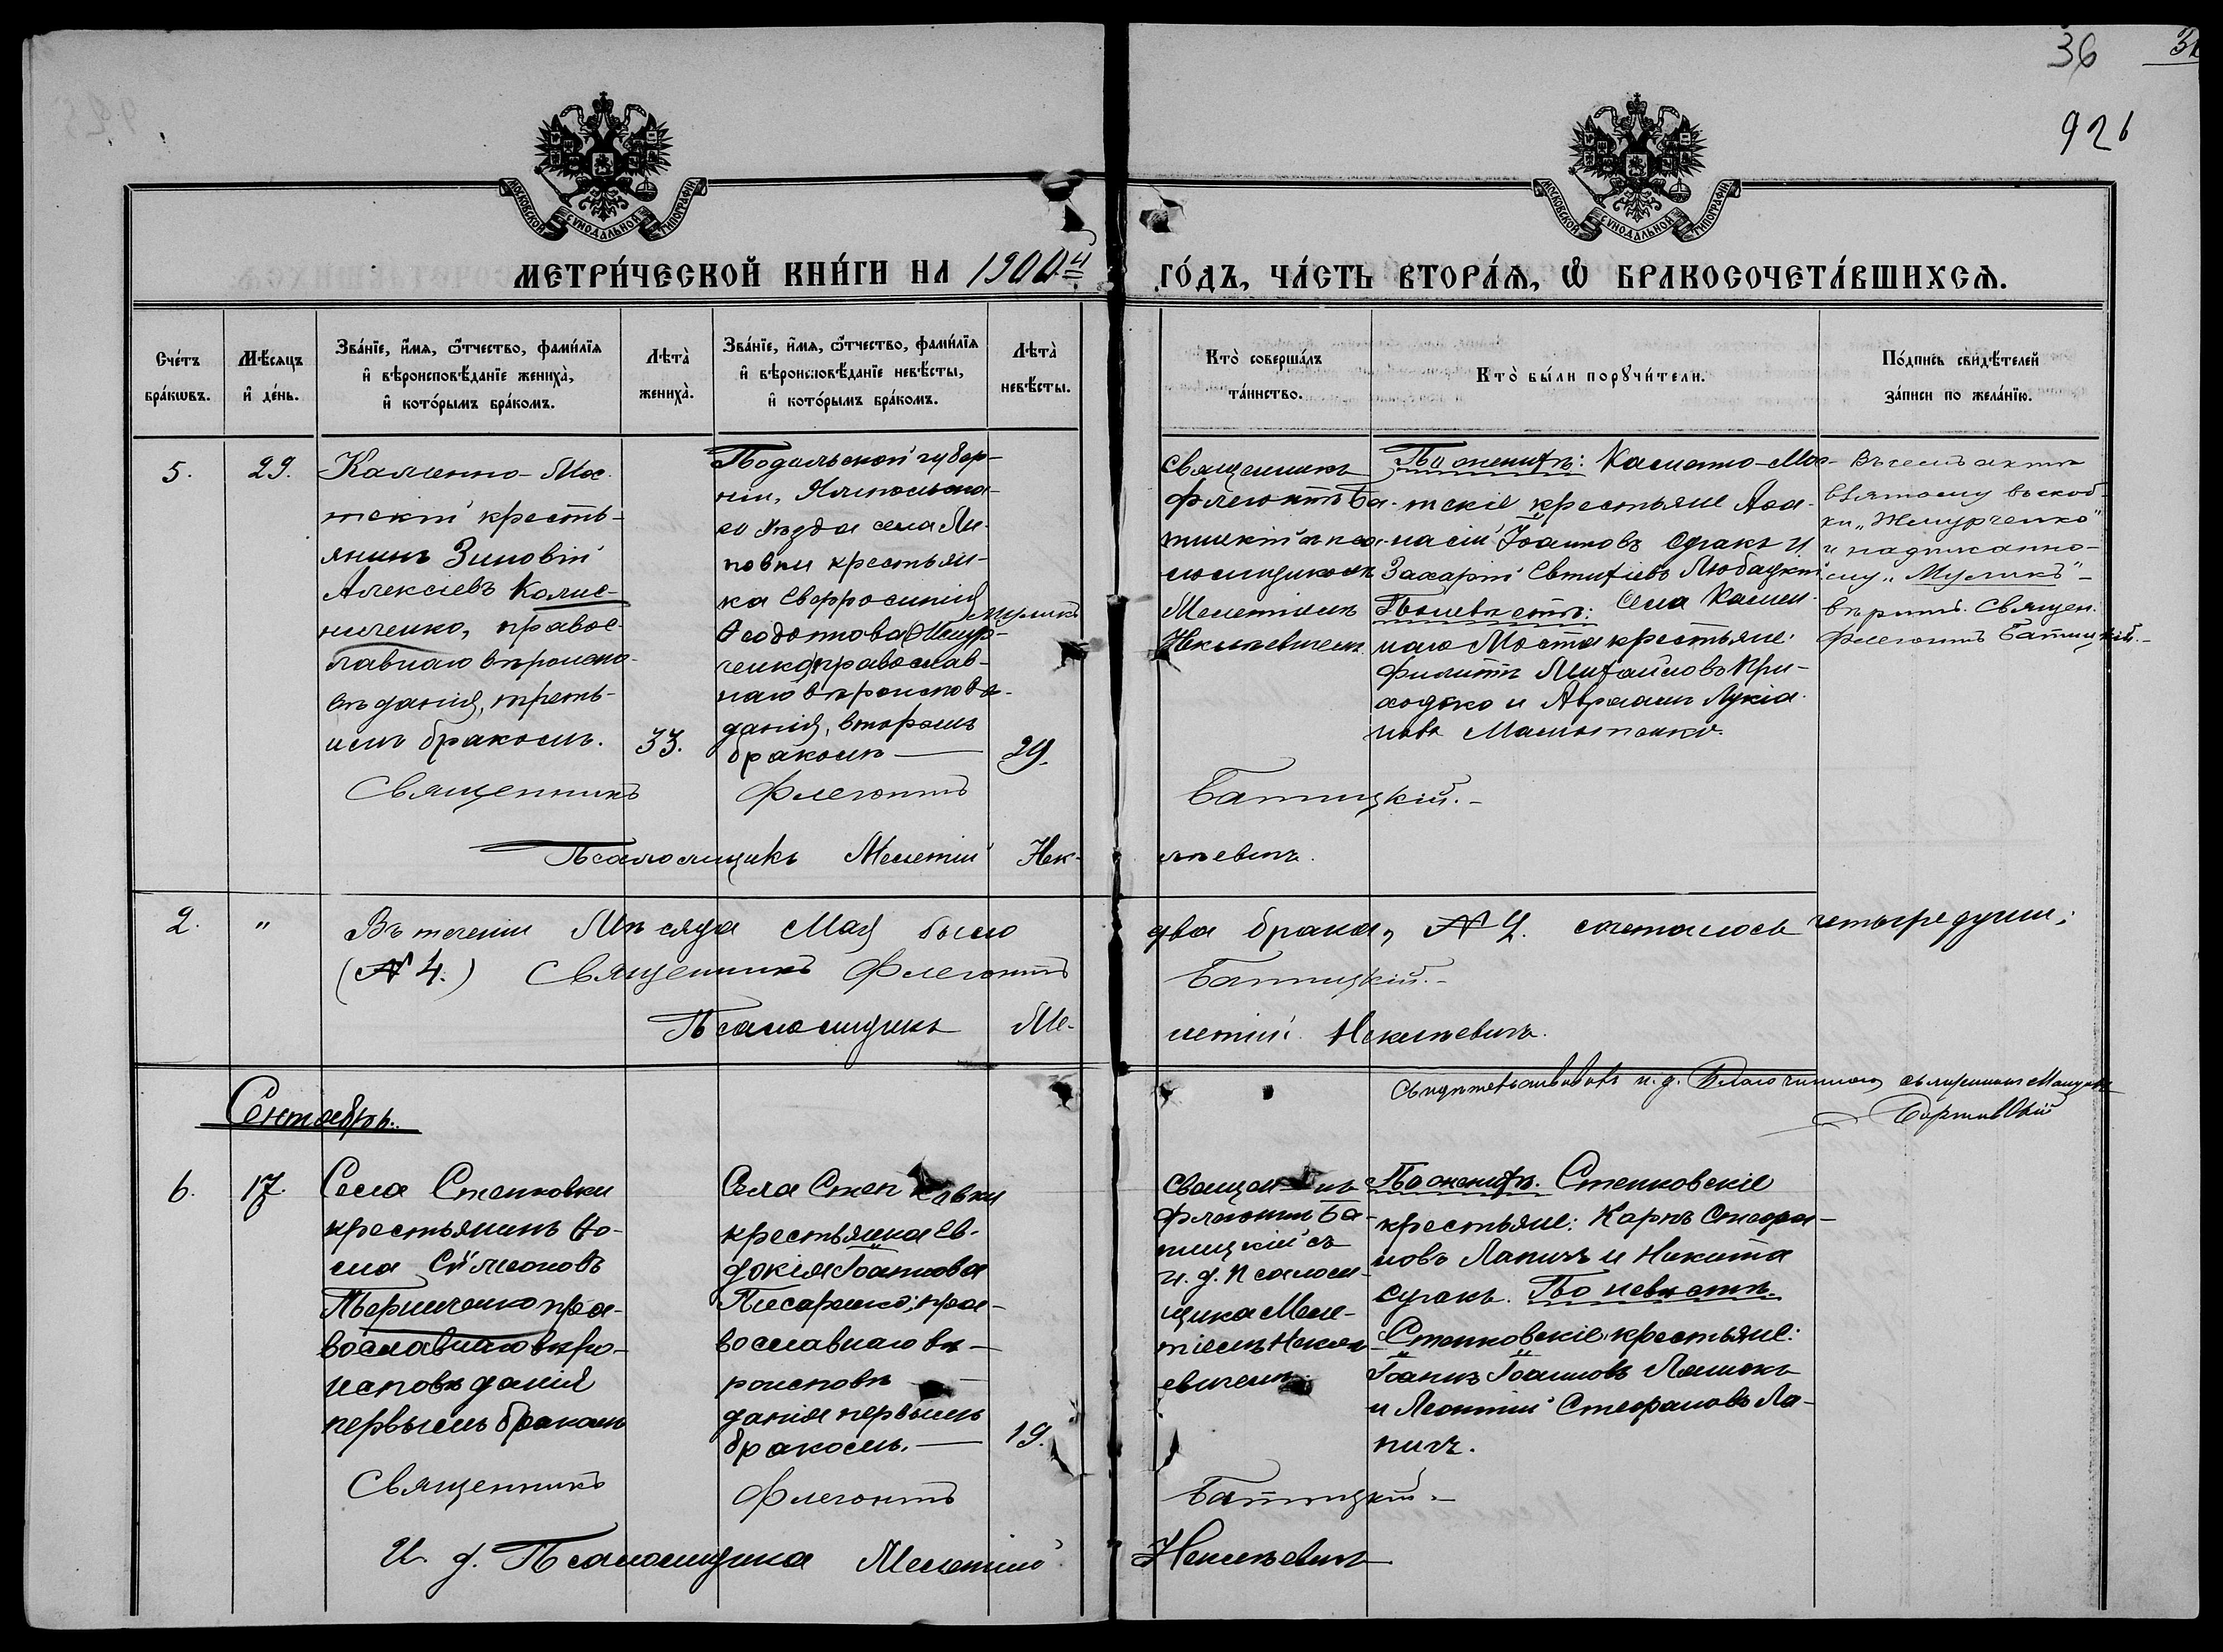 36
926
МОСКОВСКОЙ СѴНОДАЛЬНОЙ ТИПОГРАФІИ
МОСКОВСКОЙ СѴНОДАЛЬНОЙ ТИПОГРАФІИ
МЕТРИ́ЧЕСКОЙ КНИ́ГИ НА 1900й ГО́ДЪ, ЧА́СТЬ ВТОРА́Ѧ, Ѽ БРАКОСОЧЕТА́ВШИХСѦ.
Счéтъ
брáкѡвъ.
Мѣ́сяцъ
и҆ дéнь.
Звáнїе, и҆́мя, ѻ҆́тчество, фамѝлїя
и҆ вѣроисповѣ́данїе женихà,
и҆ котóрымъ брáкомъ.
Лѣтà
женихà.
Звáнїе, и҆́мя, ѻ҆́тчество, фамѝлїя
и҆ вѣроисповѣ́данїе невѣ́сты,
и҆ котóрымъ брáкомъ.
Лѣтà
невѣ́сты.
Ктò совершáлъ
тáинство.
Ктò бы́ли порꙋчи́тели.
Пóдпись свидѣ́телей
зáписи по желáнїю.
5.
29.
Каменно-Мос-
тскій кресть-
янинъ Зиновій
Алексіевъ Колис-
ниченко, правос-
лавнаго вѣроиспо-
вѣданія, треть-
имъ бракомъ.
33.
Подольской губер-
ніи, Ямпольска-
го уѣзда села Ли-
повки крестьян-
ка Евфросинія
Ѳеодотова (Жмур- Муликъ
ченко) православ-
наго вѣроисповѣ-
данія, вторымъ
бракомъ —
29.
Священникъ
Флегонтъ Ба-
тицкій съ пса-
ломщикомъ
Мелетіемъ
Некмѣвичемъ
По женихѣ: Каменно-Мос-
тскіе крестьяне Аѳа-
насій Іоанновъ Судакъ и
Захарій Евтихіевъ Любацкій
По невѣстѣ: Села Камен-
наго Моста крестьяне:
Филиппъ Михайловъ При-
ходько и Авраамъ Лукіа-
новъ Манипенко.
Въ семъ актѣ
взятому въ скоб-
ки „Жмурченко"
и надписанно-
му „Муликъ" —
вѣрить. Священ.
Флегонтъ Батицкій. —
Священникъ Флегонтъ Батицкій. —
Псаломщикъ Мелетій Нек-мѣвичъ.
2.
"
Въ теченіи Мѣсяца Мая было два брака, № 2. сочеталось четыре души;
(№ 4.) Священникъ Флегонтъ Батицкій. —
Псаломщикъ Ме-летій Некмѣвичъ.
Свидѣтельствовалъ и. д. Благочиннаго священникъ
Сентябрь.
6.
17.
Села Степковки
крестьянинъ Ѳо-
ма Сѷмеоновъ
Ткерниченко пра-
вославнаго вѣро-
исповѣданія
первымъ бракомъ
Села Степковки
крестьянка Ев-
докія Іоаннова
Писаренко; пра-
вославнаго вѣ-
роисповѣ-
данія первымъ
бракомъ. —
19.
Священникъ
Флегонтъ Ба-
тицкій съ
и. д. Псалом-
щика Меле-
тіемъ Некмѣ-
евичемъ.
По женихѣ. Степковскіе
крестьяне: Карпъ Стефа-
новъ Лапичъ и Никита
Судакъ. По невѣстѣ.
Степковскіе крестьяне:
Іоаннъ Іоанновъ Ляшокъ
и Леонтій Стефановъ Ла-
пичъ.
Священникъ Флегонтъ Батицкій. —
И. д. Псаломщика Мелетій Некмѣвичъ